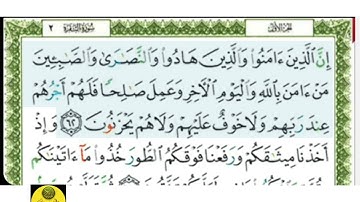 الجزء الأول سورة البقرة ٢
إِنَّ ٱلَّذِينَ ءَامَنُوا۟ وَٱلَّذِينَ هَادُوا۟ وَٱلنَّصَٰرَىٰ وَٱلصَّٰبِـِٔينَ
مَنْ ءَامَنَ بِٱللَّهِ وَٱلْيَوْمِ ٱلْءَاخِرِ وَعَمِلَ صَٰلِحًا فَلَهُمْ أَجْرُهُمْ
عِندَ رَبِّهِمْ وَلَا خَوْفٌ عَلَيْهِمْ وَلَا هُمْ يَحْزَنُونَ ٦٢ وَإِذْ
أَخَذْنَا مِيثَٰقَكُمْ وَرَفَعْنَا فَوْقَكُمُ ٱلطُّورَ خُذُوا۟ مَآ ءَاتَيْنَٰكُم